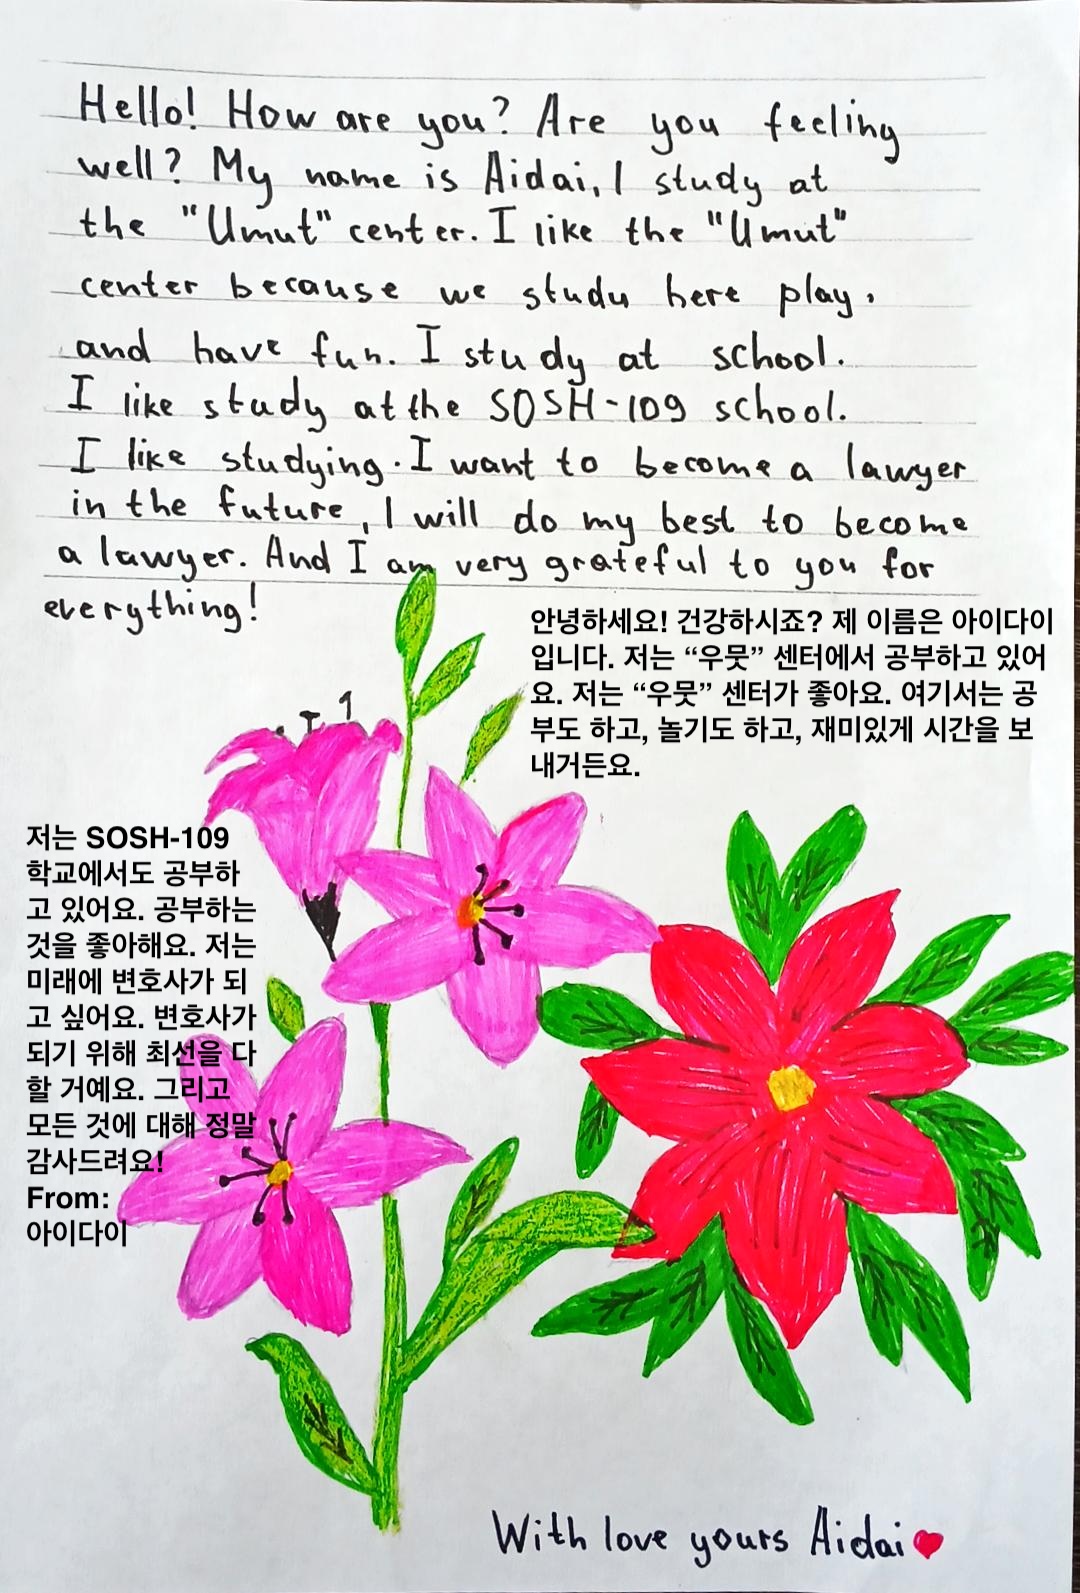 Hello! How are you? Are you feeling
well? My name is Aidai, I study at
the "Umut" center. I like the "Umut"
center because we studu here play,
and have fun. I study at school.
I like study at the SOSH-109 school.
I like studying. I want to become a lawyer
in the future, I will do my best to become
a lawyer. And I am very grateful to you for
everything!
안녕하세요! 건강하시죠? 제 이름은 아이다이
입니다. 저는 “우뭇” 센터에서 공부하고 있어
요. 저는 “우뭇” 센터가 좋아요. 여기서는 공
부도 하고, 놀기도 하고, 재미있게 시간을 보
내거든요.
저는 SOSH-109
학교에서도 공부하
고 있어요. 공부하는
것을 좋아해요. 저는
미래에 변호사가 되
고 싶어요. 변호사가
되기 위해 최선을 다
할 거예요. 그리고
모든 것에 대해 정말
감사드려요!
From:
아이다이
With love yours Aidai